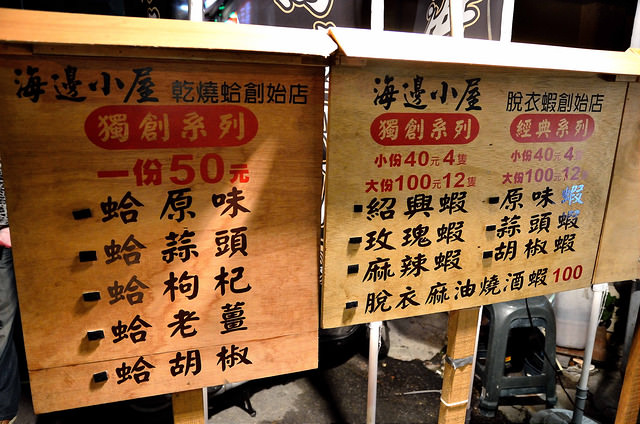 海邊小屋 乾燒蛤創始店
獨創系列
一份50元
蛤原味
蛤蒜頭
蛤枸杞
蛤老薑
蛤胡椒
海邊小屋 脫衣蝦創始店
獨創系列
小份40元4隻
大份100元12隻
紹興蝦
玫瑰蝦
麻辣蝦
經典系列
小份40元4隻
大份100元12隻
原味蝦
蒜頭蝦
胡椒蝦
脫衣麻油燒酒蝦100